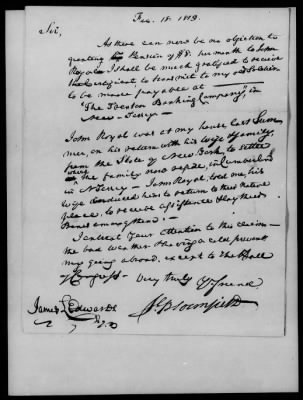 Feb. 18. 1819.
Sir,
As there can now be no objection to
granting the Pension of $8. per month to John
Royal I shall be much gratified to receive
the Certificate to transmit to my old Soldier
to be made payable at
"The Trenton Banking Company", in
New-Jersey.
John Royal was at my house last Sum
mer, on his return with his wife & family,
from the State of New York, to settle
the family now reside, in Cumberland
in N Jersey - John Royal, told me his
wife induced him to return to this Native
place, to receive assistance & lay their
Bones among them.
I entreat your attention to this
the bad weather & having a cold prevent
my going abroad, except to the Hall
of Congress - Very truly Yr friend
James L Edwards
J. Bloomfield